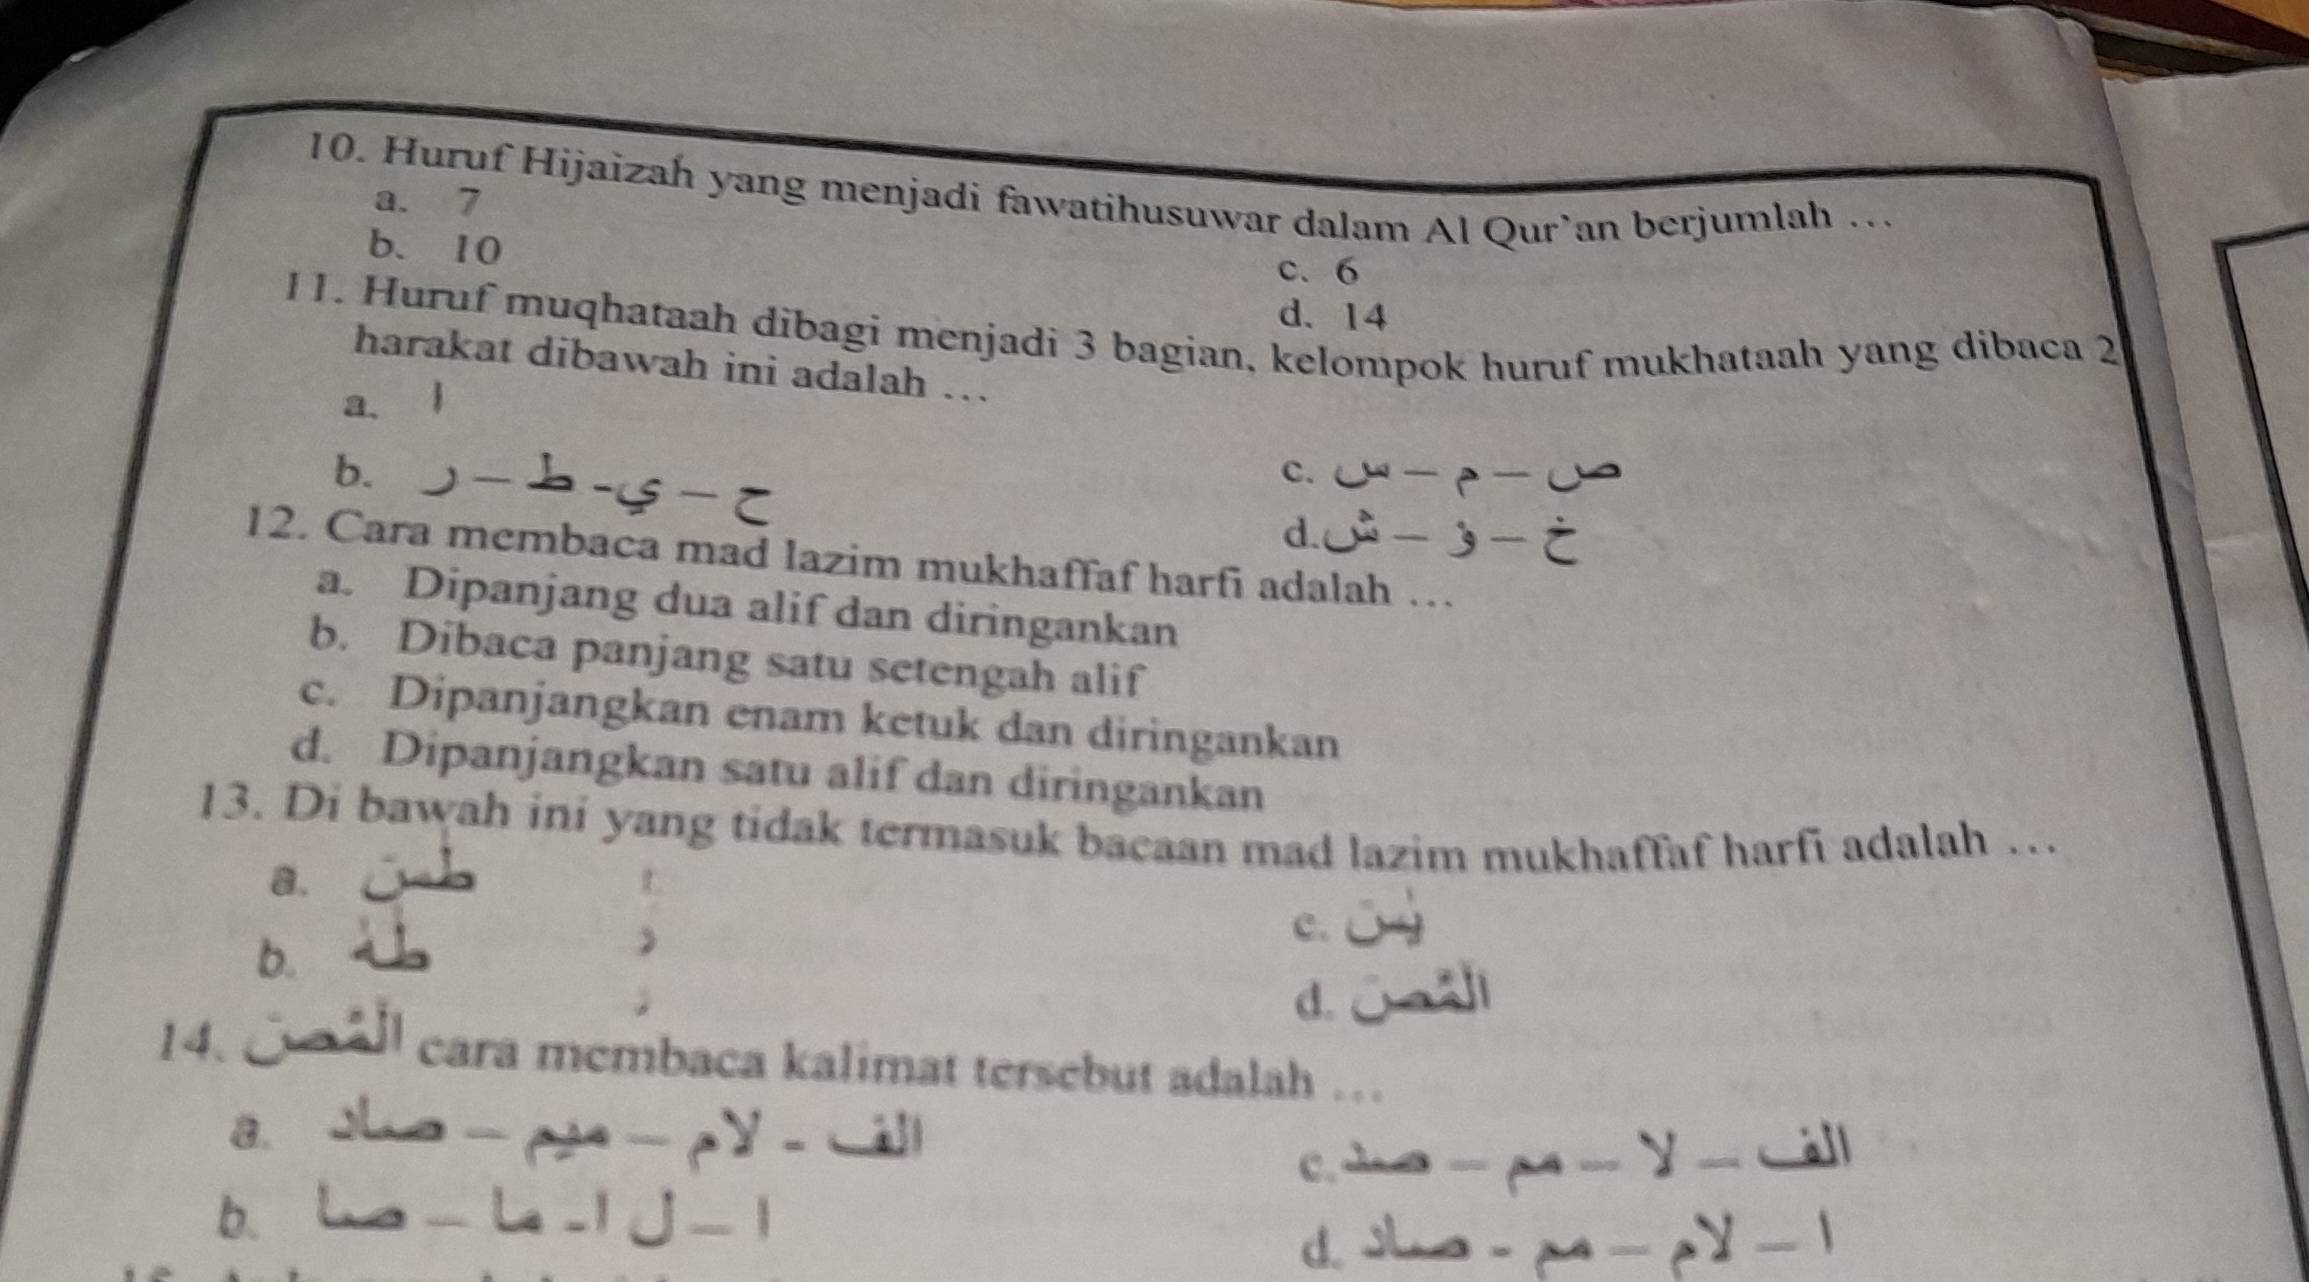 10. Huruf Hijaizah yang menjadi fawatihusuwar dalam Al Qur'an berjumlah ...
a. 7
b. 10
c. 6
d. 14
11. Huruf muqhataah dibagi menjadi 3 bagian, kelompok huruf mukhataah yang dibaca 2
harakat dibawah ini adalah ...
a. ا
b. ح – ي - ط – ر
c. ص – م – س
d. خ – ؤ – ش
12. Cara membaca mad lazim mukhaffaf harfi adalah ...
a. Dipanjang dua alif dan diringankan
b. Dibaca panjang satu setengah alif
c. Dipanjangkan enam ketuk dan diringankan
d. Dipanjangkan satu alif dan diringankan
13. Di bawah ini yang tidak termasuk bacaan mad lazim mukhaffaf harfi adalah ...
a. طس
b. طه
c. يس
d. المص
14. المص cara membaca kalimat tersebut adalah ...
a. الف - لام – ميم – صاد
b. ا – ل ا- ما – صا
c. الف – لا – مم – صد
d. ا – لام – مم - صاد